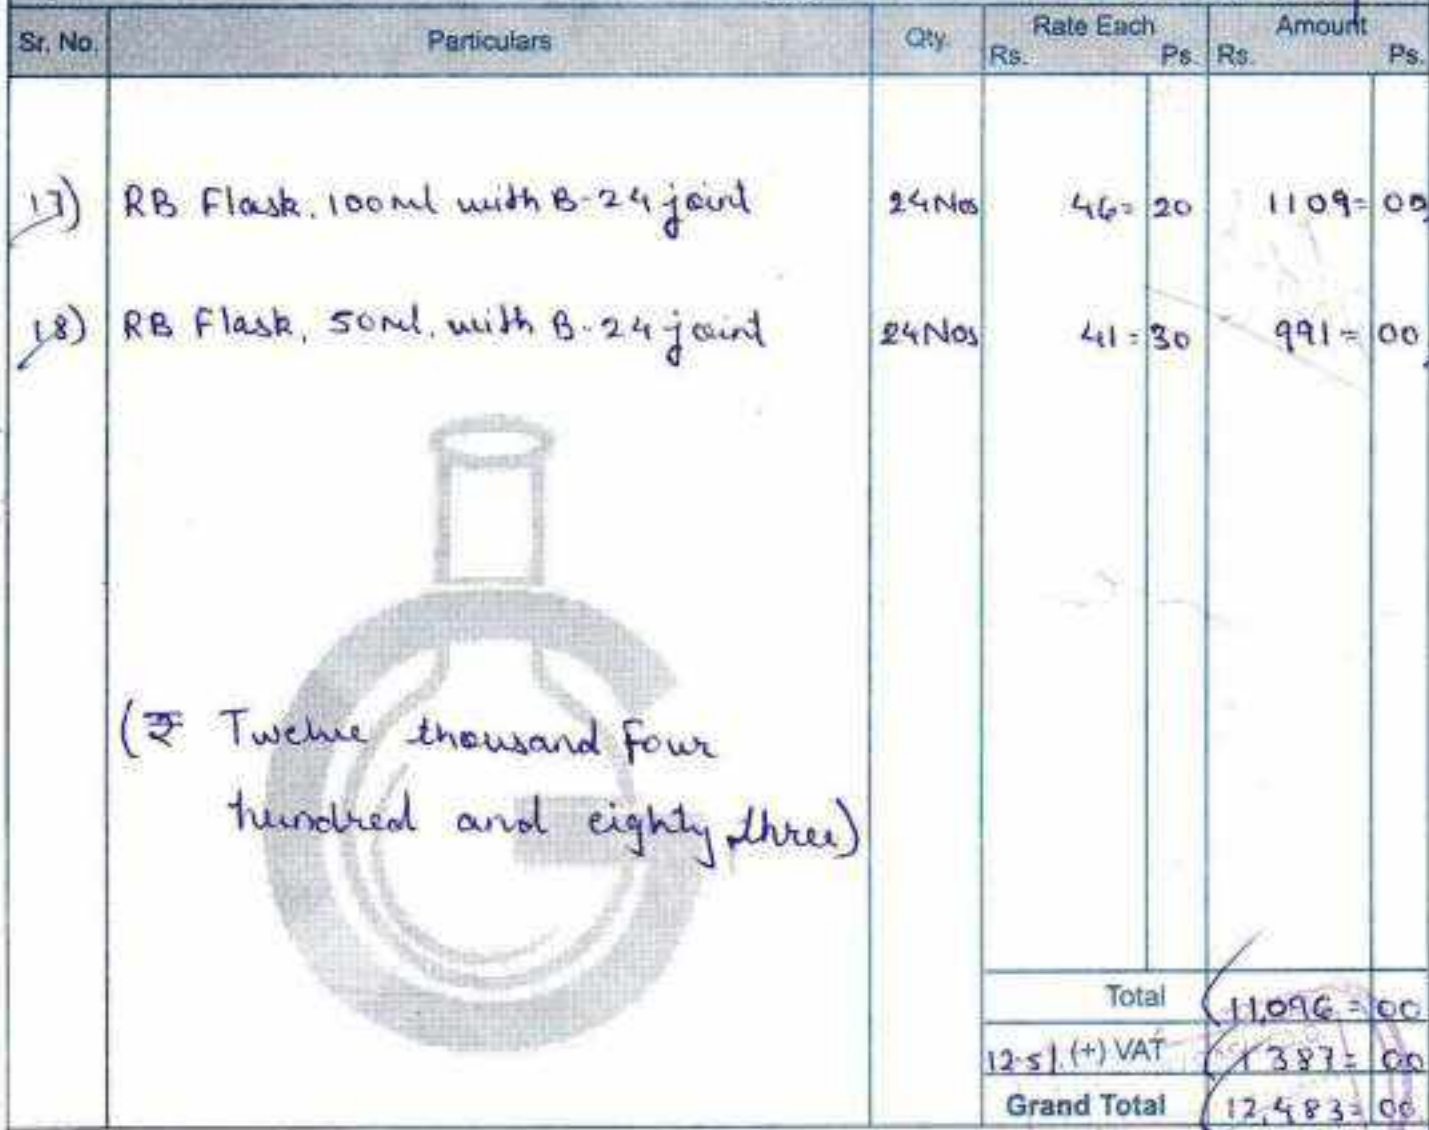 Sr. No. Particulars Qty. Rate Each Amount
Rs. Ps. Rs. Ps.
17) RB Flask. 100ml with B-24 joint 24Nos 46=20 1109=00
18) RB Flask, 50ml. with B-24 joint 24Nos 41=30 991=00
(₹ Twelve thousand Four
hundred and eighty three)
Total 11,096=00
12.5%(+) VAT 1387=00
Grand Total 12,483=00